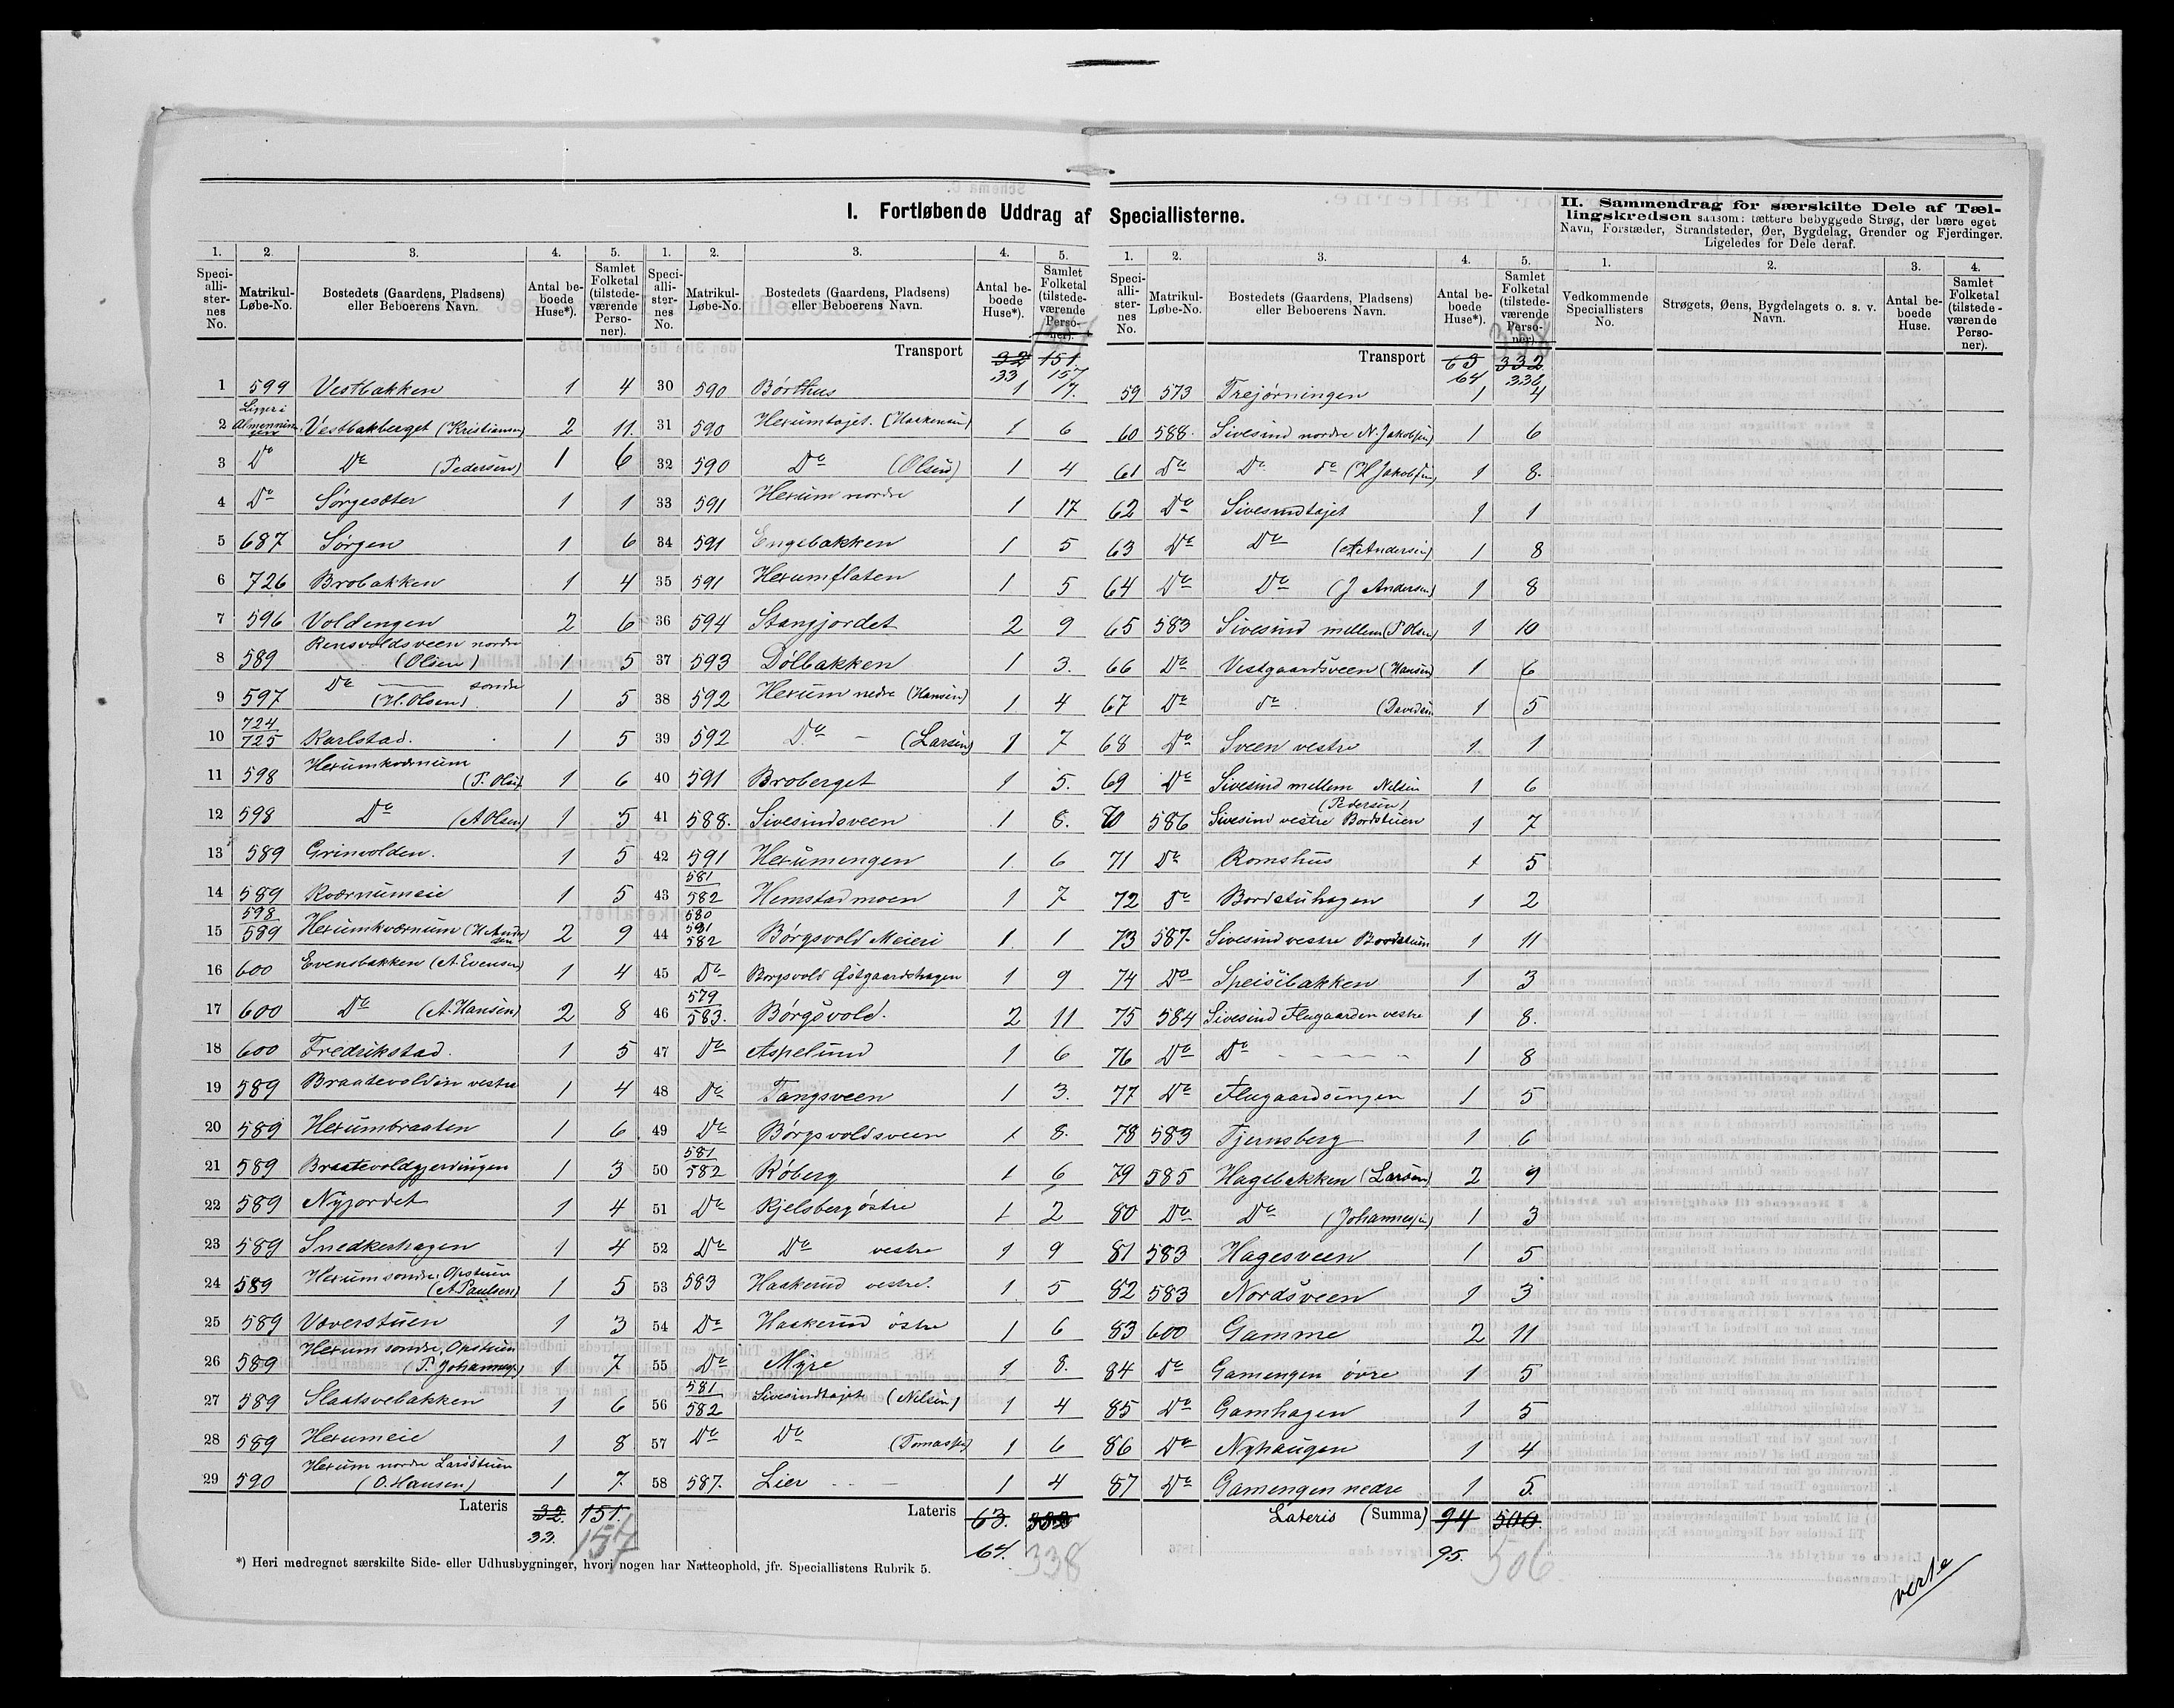 I. Fortløbende Uddrag af Speciallisterne.
II. Sammendrag for særskilte Dele af Tæl-
lingskredsen saasom: tættere bebyggede Strøg, der bære eget
Navn, Forstæder, Strandsteder, Øer, Bygdelag, Grender og Fjerdinger.
Ligeledes for Dele deraf.
1. 2. 3. 4. 5.
Speciallisternes No. Matrikul-Løbe-No. Bostedets (Gaardens, Pladsens) eller Beboerens Navn. Antal beboede Huse*). Samlet Folketal (tilstedeværende Personer).
1 599 Vestbakken 1 4
2 Ligger i Almenningen Vestbakberget (Kristiansen) 2 11.
3 Do Do (Pedersen) 1 6
4 Do Sørgesæter 1 1
5 687 Sørgen 1 6
6 726 Brobakken 1 4
7 596 Voldengen 2 6
8 589 Rensvoldsveen nordre (Olsen) 1 5
9 597 Do søndre (H. Olsen) 1 5
10 724/725 Karlstad. 1 5
11 598 Hexumkværnum (P. Olsen) 1 6
12 598 Do (A Olsen) 1 5
13 589 Grinvolden. 1 5
14 589 Kværnumeie 1 5
15 598/589 Hexumkværnum (H. Andersen) 2 9
16 600 Evensbakken (A. Evensen) 1 4
17 600 Do (A. Hansen) 2 8
18 600 Fredrikstad. 1 5
19 589 Braatevolden vestre 1 4
20 589 Hexumbraaten 1 6
21 589 Braatevoldgjerdingen 1 3
22 589 Nyjordet 1 4
23 589 Snedkerhagen 1 4
24 589 Hexum søndre, Opstuen (A. Paulsen) 1 5
25 589 Væverstuen 1 3
26 589 Hexum søndre, Opstuen (P. Johannesen) 1 7
27 589 Slaatsvebakken 1 6
28 589 Hexumeie 1 8
29 590 Hexum nordre Larsstuen (O. Hansen) 1 7.
Lateris 32. 151.
33. 157
1. 2. 3. 4. 5.
Speciallisternes No. Matrikul-Løbe-No. Bostedets (Gaardens, Pladsens) eller Beboerens Navn. Antal beboede Huse*). Samlet Folketal (tilstedeværende Personer).
Transport 32 151.
33 157
30 590 Børthus 1 17.
31 590 Hexumtajet. (Haakensen) 1 6
32 590 Do (Olsen) 1 4
33 591 Hexum nordre 1 17
34 591 Engebakken 1 5
35 591 Hexumflaten 1 5
36 594 Stangjordet 2 9
37 593 Dølbakken 1 3.
38 592 Hexum nedre (Hansen) 1 4
39 592 Do (Larsen) 1 7
40 591 Broberget 1 5.
41 588. Sivesindsveen 1 8.
42 591 Hexumengen 1. 6
43 581/582 Hemstadmoen 1 7
44 580 591/582 Børgsvold Meieri 1. 1
45 Do Borgsvold Østgaardshagen 1 9
46 579/583. Børgsvold. 2 11
47 Do Aspelund 1 6
48 Do Tangsveen 1 3.
49 Do Børgsvoldsveen 1 8.
50 581/582 Røberg 1 6
51 Do Kjelsberg østre 1 2
52 Do Do vestre 1 9
53 583 Haakerud vestre. 1 5
54 Do Haakerud østre 1 6
55 Do Myre 1 8.
56 581/582 Sivesindtajet (Nelsen) 1 4
57 Do Do (Tomassen) 1 6
58 587. Lier 1 4
Lateris 63. 332
64. 338
1. 2. 3. 4. 5.
Speciallisternes No. Matrikul-Løbe-No. Bostedets (Gaardens, Pladsens) eller Beboerens Navn. Antal beboede Huse*). Samlet Folketal (tilstedeværende Personer).
338
Transport 63 332
64 338
59 573 Trejørningen 1 4
60 588. Sivesind nordre N. Jakobsen) 1 6
61 Do Do do (H Jakobsen) 1 8.
62 Do Sivesindtajet 1 1
63 Do Do (A Andersen) 1 8
64 Do Do (J Andersen) 1 8
65 583 Sivesind mellem (P Olsen) 1 10
66 Do Vestgaardsveen (Hansen) 1 6
67 Do do (Davedsen 1 5
68 Do Sveen vestre 1 1
69 Do Sivesind mellem Nelsen 1 6
70 586 Sivesind vestre Bordstuen (Pedersen) 1 7
71 Do Romshus 1 5
72 do Bordstuhagen 1 2
73 587. Sivesind vestre Bordstuen 1 11
74 Do Speisebakken 1 3
75 584 Sivesind Flugaarden vestre 1 8.
76 Do Do 1 8
77 Do Flugaardsengen 1 5
78 583 Tjernsberg 1 6
79 585 Hagebakken (Larsen) 2 9
80 Do Do (Johannesen) 1 3
81 583 Hagesveen 1 5
82 583 Nordsveen 1 3
83 600 Gamme 2 11
84 do Gamengen øvre 1 5
85 Do Gamhagen 1 5
86 Do Nyhaugen 1 4
87 Do Gamengen nedre 1 5.
Lateris (Summa) 94 500.
95. 506.
1. 2. 3. 4.
Vedkommende Speciallisters No. Strøgets, Øens, Bygdelagets o. s. v. Navn. Antal beboede Huse. Samlet Folketal (tilstedeværende Personer).
*) Heri medregnet særskilte Side- eller Udhusbygninger, hvori nogen har Natteophold, jfr. Speciallistens Rubrik 5.
verte